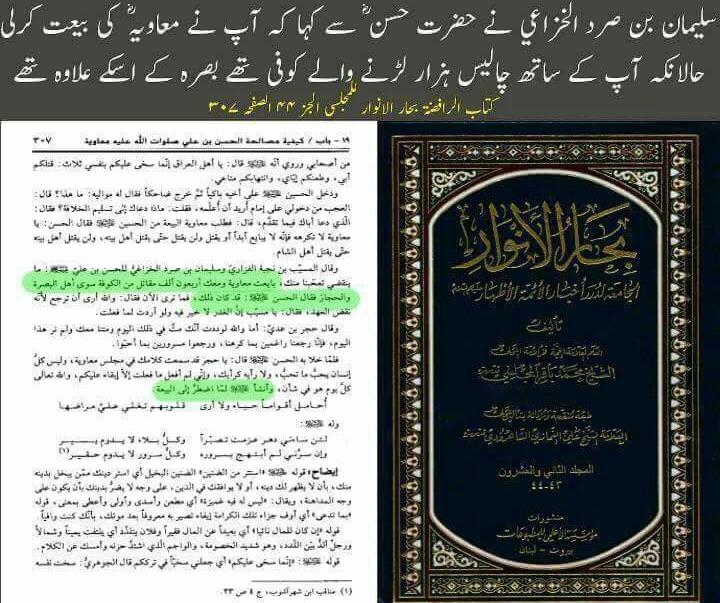 سلیمان بن صرد الخزاعي نے حضرت حسنؓ سے کہا کہ آپ نے معاویہؓ کی بیعت کرلی
حالانکہ آپ کے ساتھ چالیس ہزار لڑنے والے کوفی تھے بصرہ کے اسکے علاوہ تھے
کتاب الرافضة بحار الانوار للمجلسي الجز ٤٤ الصفحه ٣٠٧
١٩ - باب / كيفية مصالحة الحسن بن علي صلوات الله عليه معاوية ٣٠٧
من أصحابي وروي أنه قال: يا أهل العراق إنما سخى عليكم بنفسي ثلاث: قتلكم
أبي، وطعنكم إياي، وانتهابكم متاعي.
ودخل الحسين على أخيه باكياً ثم خرج ضاحكاً فقال له مواليه: ما هذا؟ قال:
العجب من دخولي على إمام أريد أن أعلمه، فقلت: ماذا دعاك إلى تسليم الخلافة؟ فقال:
الذي دعا أباك فيما تقدم، قال: فطلب معاوية البيعة من الحسين فقال الحسن: يا
معاوية لا تكرهه فإنه لا يبايع أبداً أو يقتل ولن يقتل حتى يقتل أهل بيته، ولن يقتل أهل بيته
حتى يقتل أهل الشام.
وقال المسيب بن نجبة الفزاري وسليمان بن صرد الخزاعي للحسن بن علي : ما
ينقضي تعجبنا منك، بايعت معاوية ومعك أربعون ألف مقاتل من الكوفة سوى أهل البصرة
والحجاز فقال الحسن : قد كان ذلك، فما ترى الآن فقال: والله أرى أن ترجع لأنه
نقض العهد، فقال: يا مسيب إن الغدر لا خير فيه ولو أردت لما فعلت.
وقال حجر بن عدي: أما والله لوددت أنك مت في ذلك اليوم ومتنا معك ولم نر هذا
اليوم، فإنا رجعنا راغمين بما كرهنا، ورجعوا مسرورين بما أحبوا.
فلما خلا به الحسن قال: يا حجر قد سمعت كلامك في مجلس معاوية، وليس كل
إنسان يحب ما تحب، ولا رأيه كرأيك، وإني لم أفعل ما فعلت إلا إبقاء عليكم، والله تعالى
كل يوم هو في شأن، وأنشأ لما اضطر إلى البيعة:
أجامل أقواماً حياء ولا أرى قلوبهم تغلي علي مراضها
وله :
لئن ساءني دهر عزمت تصبراً وكل بلاء لا يدوم يسير
وإن سرني لم أبتهج بسروره وكل سرور لا يدوم حقير(١)
إيضاح: قوله «استر من الضنين» الضنين البخيل أي استر دينك ممن يبخل بدينه
منك، بأن يظهر لك دينه، أو لا يوافقك في الدين، على وجه لا يضر بدينك بأن يكون على
وجه المداهنة، ويقال: «ليس له فيه غميزة» أي مطعن وأسدى وأولى وأعطى بمعنى، قوله
«بما تدعى» أي أوف جزاء تلك الكرامة إيفاء تصير به معروفاً بعد موتك، بأنك كنت وافياً
قوله «إن كان للمال نائيا» أي بعيداً عن المال فقيراً وفلان يتلدد أي يلتفت يميناً وشمالاً
ورجل ألد بين اللدد، وهو شديد الخصومة، والواجم الذي اشتد حزنه وأمسك عن الكلام.
قوله : «إنما سخى عليكم» أي جعلني سخياً في ترككم قال الجوهري: سخت نفسه
(١) مناقب ابن شهرآشوب، ج ٤ ص ٣٣.
بحار الأنوار
الجامعة لدرر أخبار الأئمة الأطهار
تأليف
العلم العلامة الحجة فخر الأمة المولى
الشيخ محمد باقر المجلسي
العلامة الشيخ علي النمازي الشاهرودي
المجلد الثاني والعشرون
٤٣-٤٤
منشورات
مؤسسة الأعلمي للمطبوعات
بيروت - لبنان